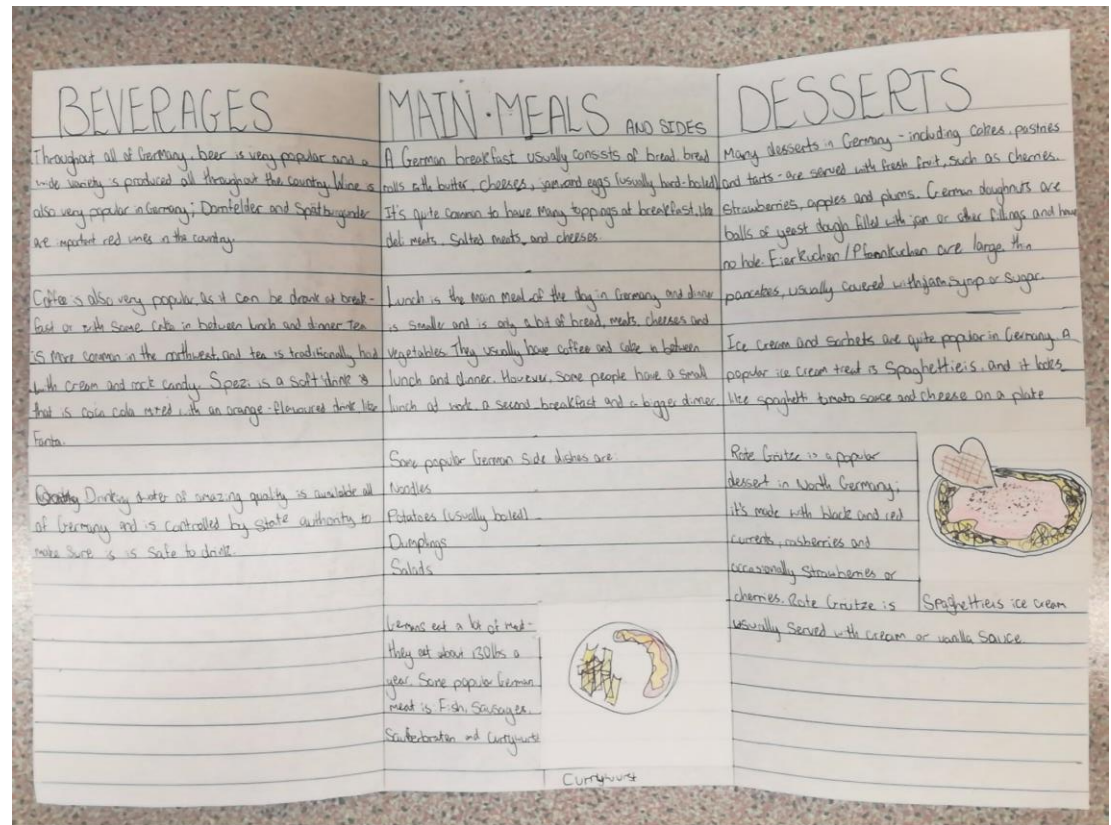 BEVERAGES
Throughout all of Germany, beer is very popular and a
wide variety is produced all throughout the country. Wine is
also very popular in Germany; Dornfelder and Spätburgunder
are important red wines in the country.
Coffee is also very popular as it can be drank at break-
fast or with some cake in between lunch and dinner. Tea
is more common in the northwest, and tea is traditionally had
with cream and rock candy. Spezi is a soft drink
that is coca cola mixed with an orange-flavoured drink like
Fanta.
Drinking water of amazing quality is available all
of Germany and is controlled by state authority to
make sure is is safe to drink.
MAIN·MEALS AND SIDES
A German breakfast usually consists of bread, bread
rolls with butter, cheeses, jam and eggs (usually hard-boiled)
It's quite common to have many toppings at breakfast, like
deli meats, salted meats, and cheeses.
Lunch is the main meal of the day in Germany and dinner
is smaller and is only a bit of bread, meats, cheeses and
vegetables. They usually have coffee and cake in between
lunch and dinner. However, some people have a small
lunch at work, a second breakfast and a bigger dinner.
Some popular German side dishes are:
Noodles
Potatoes (usually boiled)
Dumplings
Salads
Germans eat a lot of meat-
they eat about 130lbs a
year. Some popular German
meat is Fish, Sausages,
and Currywurst
Currywurst
DESSERTS
Many desserts in Germany - including cakes, pastries
and tarts - are served with fresh fruit, such as cherries,
strawberries, apples and plums. German doughnuts are
balls of yeast dough filled with jam or other fillings and have
no hole. Eierkuchen / Pfannkuchen are large, thin
pancakes, usually covered with jam, syrup or sugar.
Ice cream and sorbets are quite popular in Germany. A
popular ice cream treat is Spaghettieis, and it looks
like spaghetti tomato sauce and cheese on a plate
Rote Grütze is a popular
dessert in North Germany;
it's made with black and red
currents, rasberries and
occasionally strawberries or
cherries. Rote Grütze is
usually served with cream or vanilla sauce.
Spaghettieis ice cream